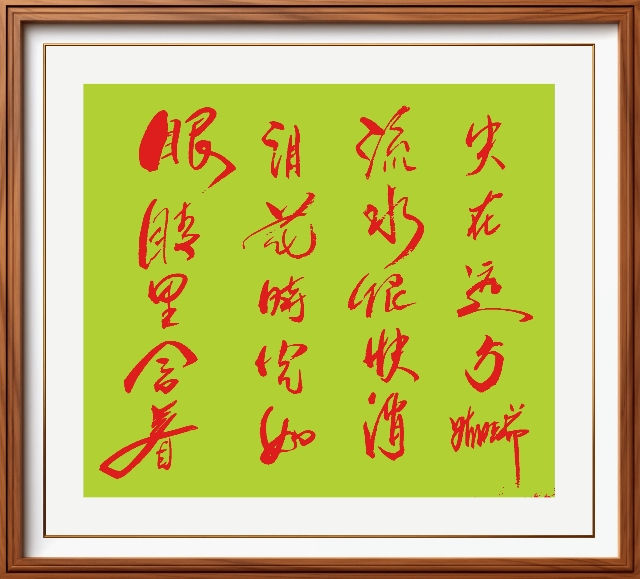 眼睛里含着
泪花时光如
流水很快消
失在远方